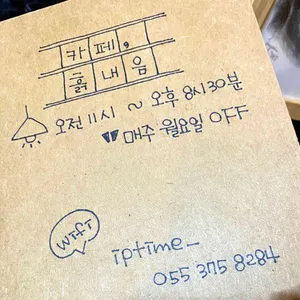 카페,
흙내음
오전 11시 ~ 오후 8시30분
매주 월요일 OFF
wifi
iptime_
055 375 8284